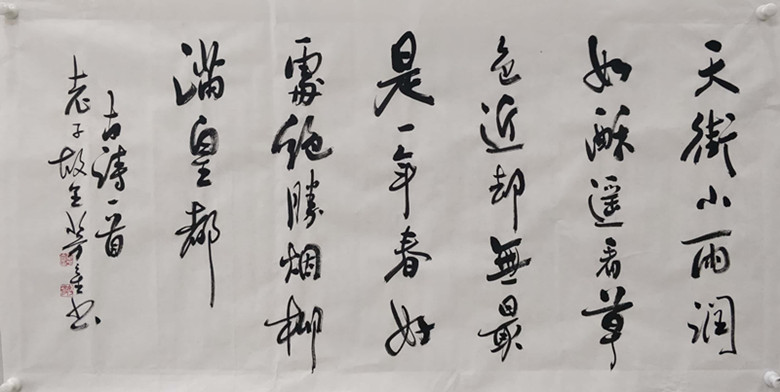 天街小雨润
如酥遥看草
色近却無最
是一年春好
處绝勝烟柳
满皇都
古诗一首
老子故里书